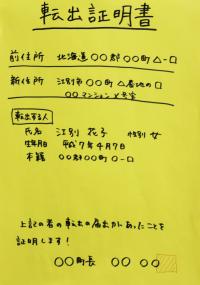 転出証明書
前住所 北海道○○郡○○町△-□
新住所 江別市○○町△番地の□
○○マンション×号室
転出する人
氏名 江別 花子 性別 女
生年月日 平成7年4月7日
本籍 ○○郡○○町○-□
上記の者の転出の届出があったことを
証明します!
○○町長 ○○ ○○